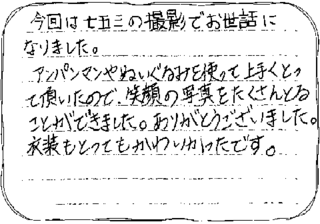 今回は七五三の撮影でお世話に
なりました。
アンパンマンやぬいぐるみを使って上手くとっ
て頂いたので、笑顔の写真をたくさんとる
ことができました。ありがとうございました。
衣装もとってもかわいかったです。